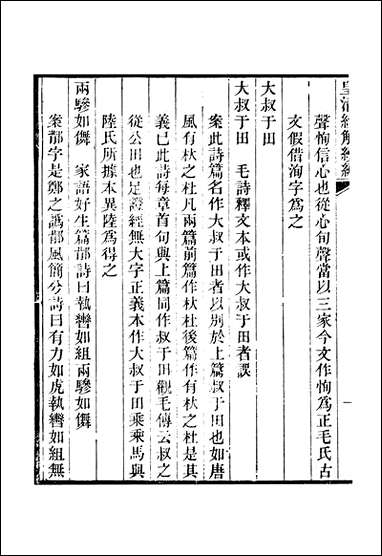 皇清經解續編
聲恂信心也從心旬聲當以三家今文作恂爲正毛氏古
文假借洵字爲之
大叔于田
大叔于田　毛詩釋文本或作大叔于田者誤
案此詩篇名作大叔于田者以別於上篇叔于田也如唐
風有杕之杜凡兩篇前篇作杕杜後篇作有杕之杜是其
義已此詩每章首句與上篇同作叔于田觀毛傳云叔之
從公田也足證經無大字正義本作大叔于田乘乘馬與
陸氏所據本異陸爲得之
兩驂如儛　家語好生篇鄁詩曰執轡如組兩驂如儛
案鄁字是鄭之譌鄁風簡兮詩曰有力如虎執轡如組無